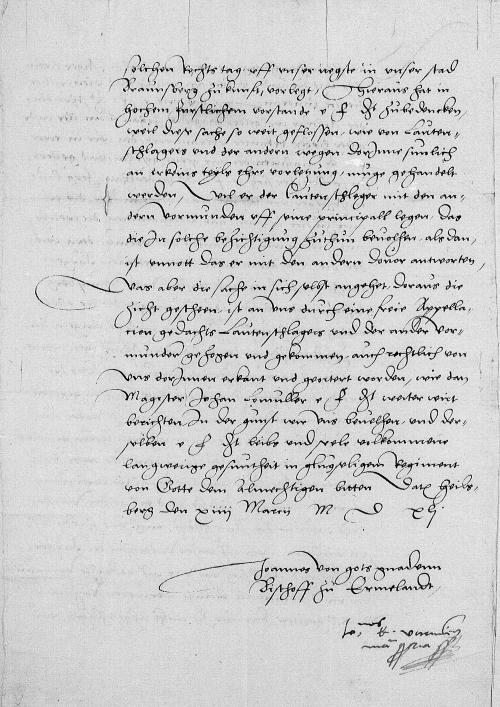 solchen Rechts tag uff unser negste in unser stad
Braunsberg zukunfft vorlegt, Hieraus hat in
hochem furstlichem vorstande e f Dt zubedencken,
weil diese sache so weit geflossen, wie von Lauten-
schlagers und der andern wegen dorinne
an erkeins teyls ehre vorletzung, muge gehandelt
werden, wil er der Lautenschleger mit den an-
dern vormunden uff seine principall legen, das
die In solche bezuchtigung zuthun bevolhen, als dan,
ist unnott das er mit den andern dovor antworten,
Was aber die sache in sich selbst angehet, doraus die
zicht gescheen, ist an uns durch eine freie Appella-
cien gedachts Lautenschlagers und der ander vor-
munder gezogen und gekommen, auch rechtlich von
uns dorinnen erkant und geortert worden, wie dan
Magister Johan e f Dt weiter wirt
berichten, In der gunst wir uns bevelhen, und der-
selben e f Dt leibs und seele vilkommene
langwerige gesuntheit in gluckseligem Regiment
von Gotte dem Almechtigen bitten Datz Heils-
berg den xiiii Marcii M D xlj
Joannes von gots gnadenn
Bischoff zu Ermelandt,
Jo
manu ppria